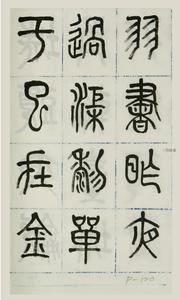 羽書昨夜
過渠黎單
于已在金
P-120